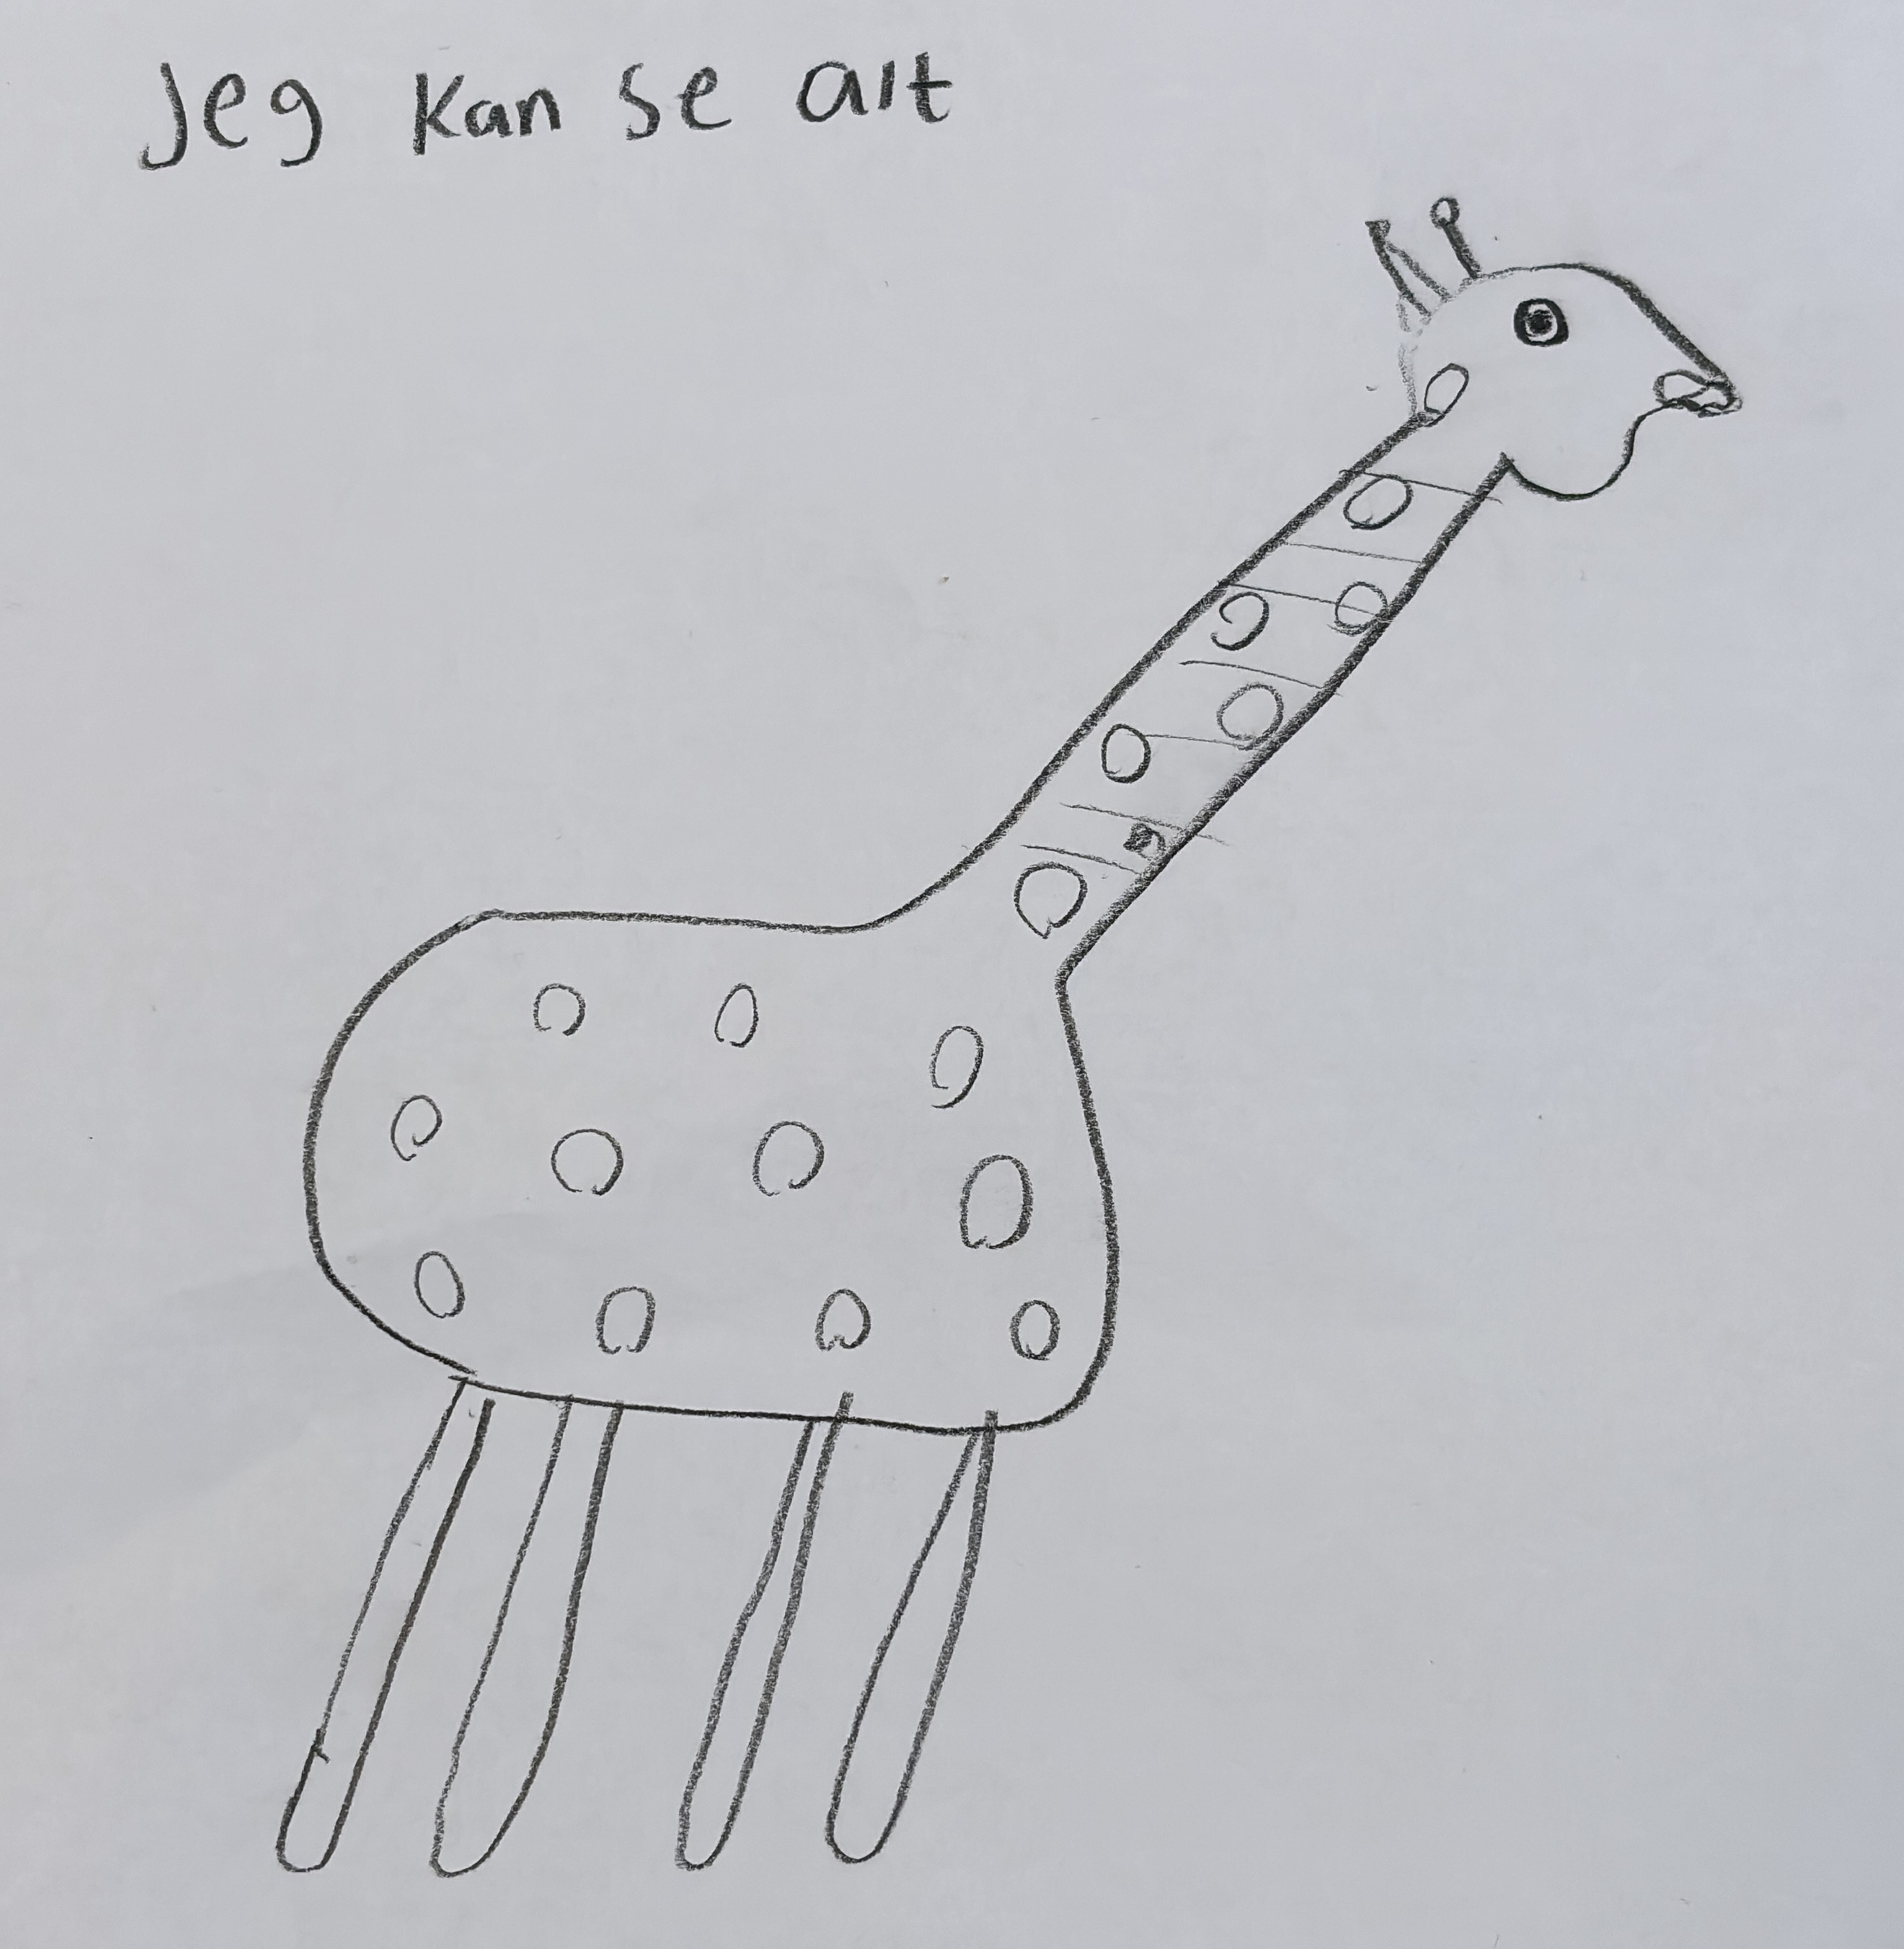 Jeg kan se alt